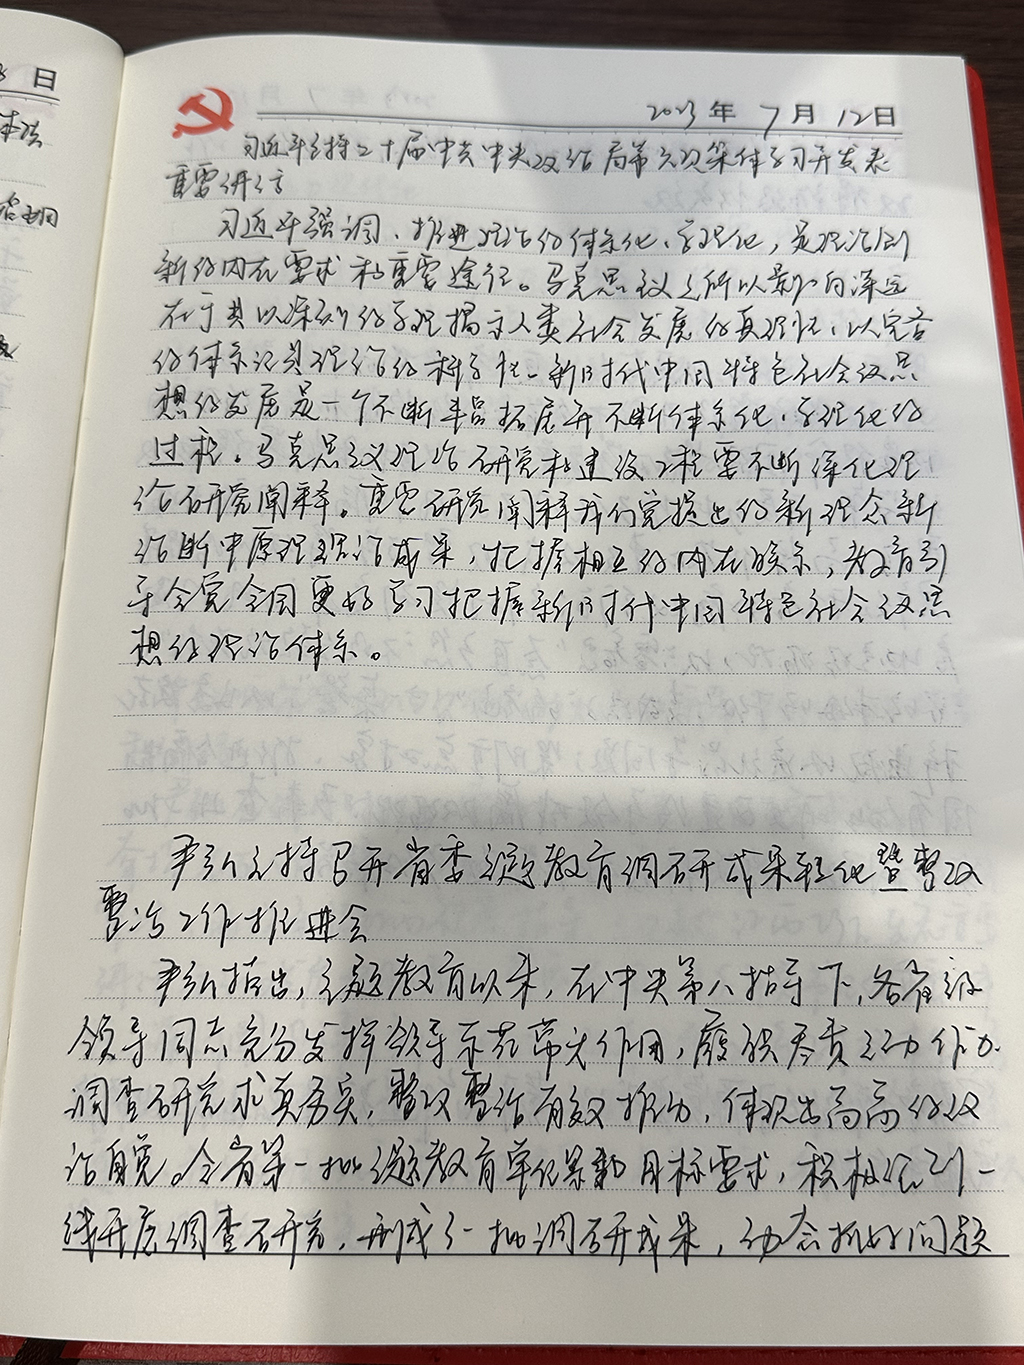 日
2023年 7月 12日
习近平主持二十届中共中央政治局第六次集体学习并发表
重要讲话
习近平强调,推进理论的体系化、学理化,是理论创
新的内在要求和重要途径。马克思主义之所以影响深远
在于其以深刻的学理揭示人类社会发展的真理性、以完备
的体系论其理论的科学性。新时代中国特色社会主义思
想的发展是一个不断丰富拓展并不断体系化、学理化的
过程。马克思主义理论研究和建设工程要不断深化理
论研究阐释。重要研究阐释我们党提出的新理念新
论断中原理理论成果,把握相互的内在联系,教育引
导全党全国更好学习把握新时代中国特色社会主义思
想的理论体系。
尹弘主持召开省委主题教育调研成果转化暨整改
整治工作推进会
尹弘指出,主题教育以来,在中央第八指导下,各省级
领导同志充分发挥领导示范带头作用,履职尽责主动作为
调查研究求真务实,整改整治有效推动,体现出高高的政
治自觉。全省第一批主题教育单位紧扣目标要求,积极深到一
线开展调查研究,形成了一批调研成果,动会抓好问题